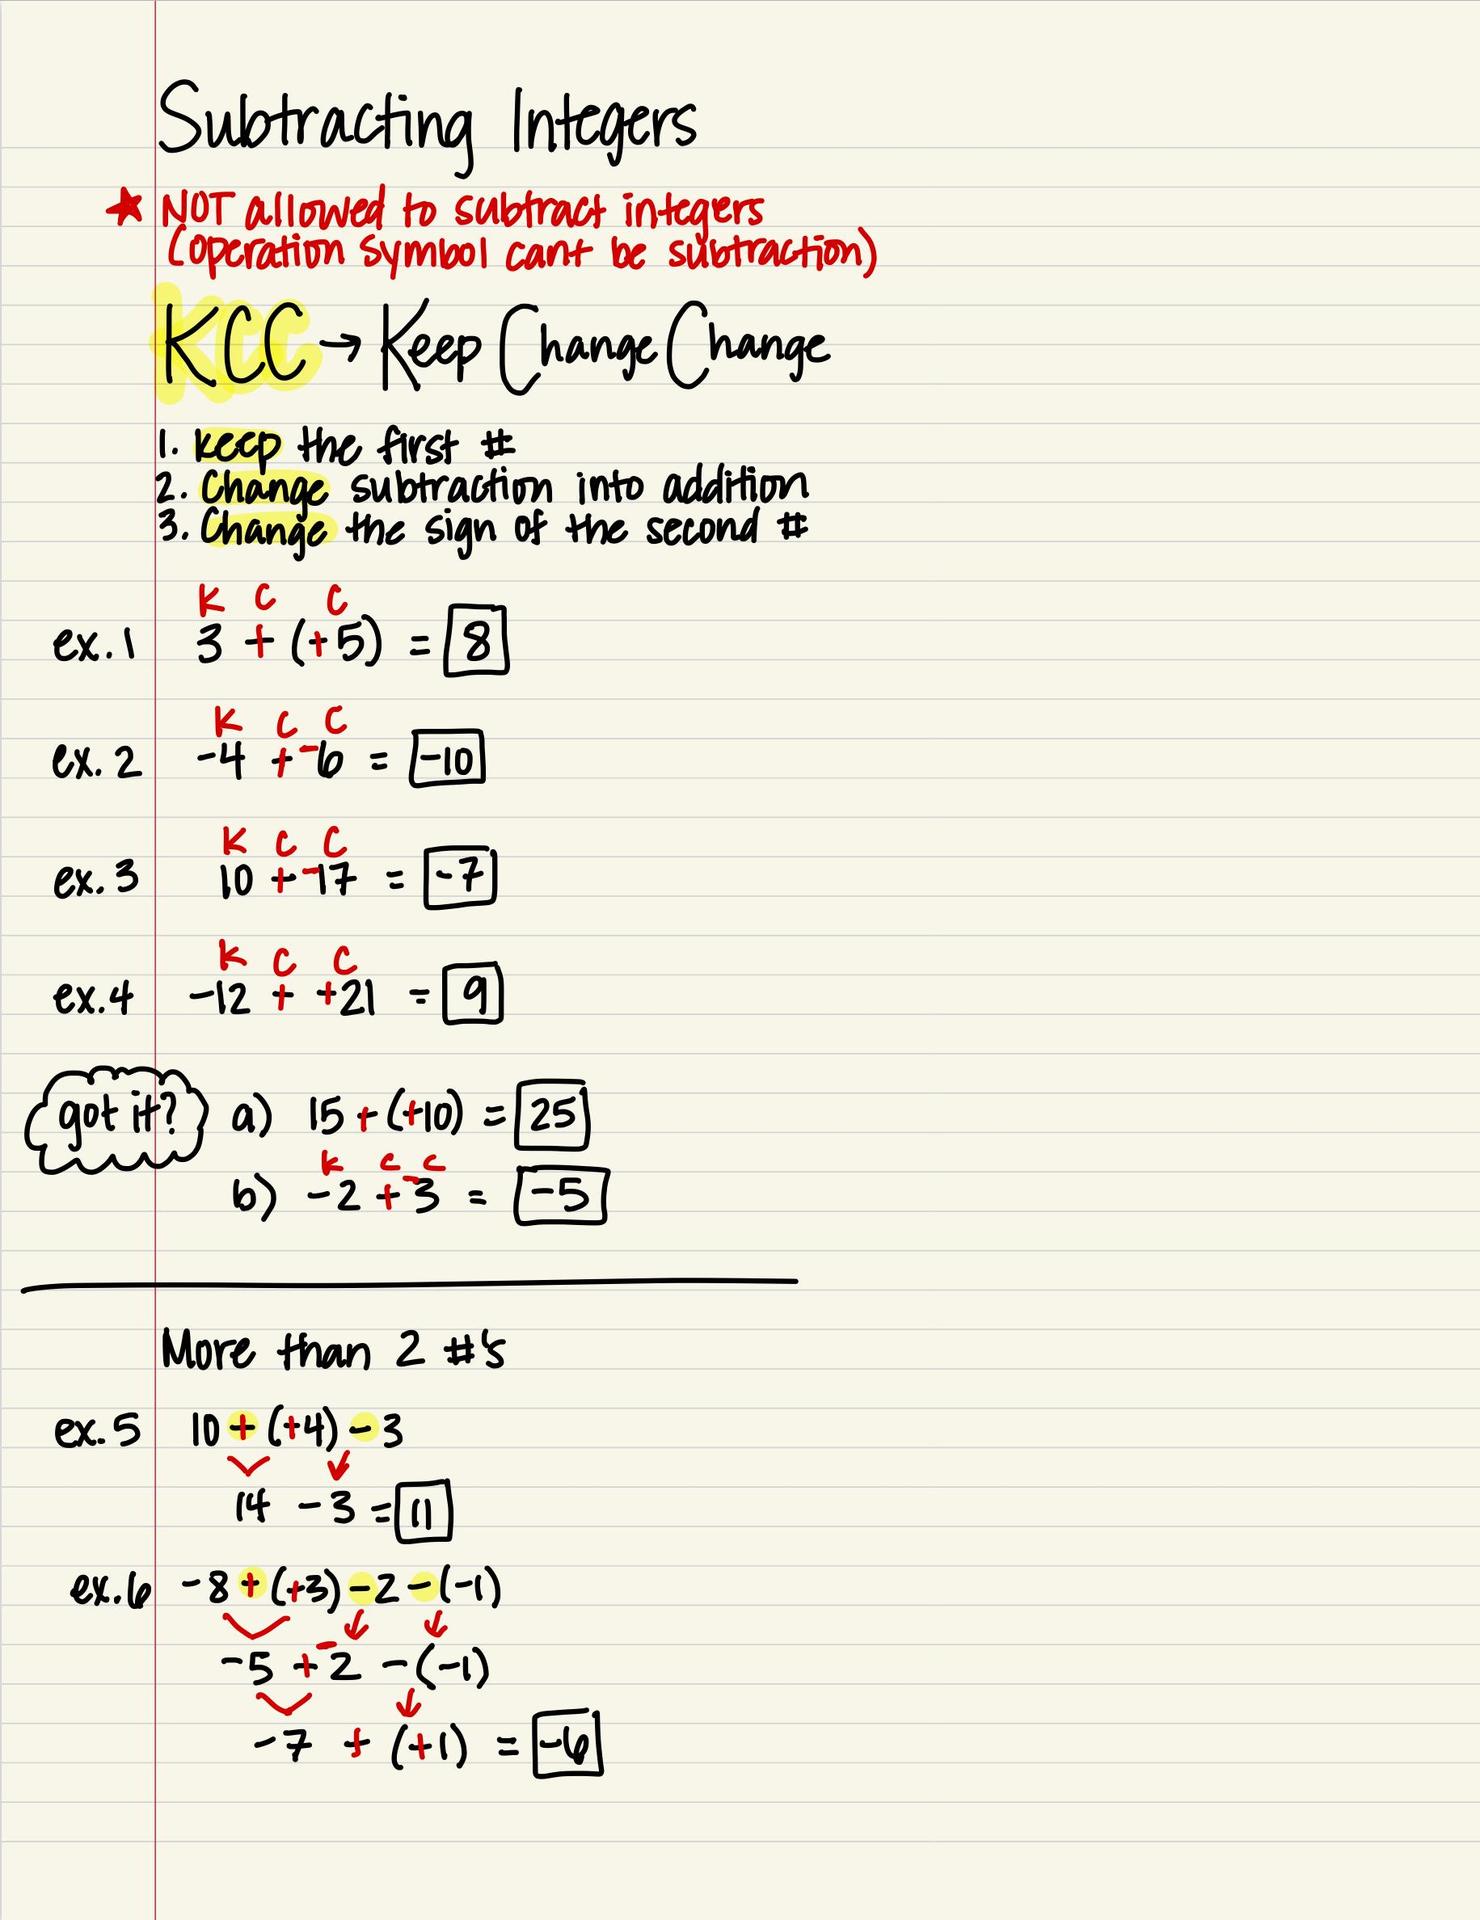 Subtracting Integers
★ NOT allowed to subtract integers
(operation symbol cant be subtraction)
KCC → Keep Change Change
1. keep the first #
2. Change subtraction into addition
3. Change the sign of the second #
K C C
ex. 1 3 + (+5) = 8
K C C
ex. 2 -4 + -6 = -10
K C C
ex. 3 10 + -17 = -7
K C C
ex. 4 -12 + +21 = 9
got it? a) 15 + (+10) = 25
K C C
b) -2 + -3 = -5
More than 2 #'s
ex. 5 10 + (+4) - 3
14 - 3 = 11
ex. 6 -8 + (+3) - 2 - (-1)
-5 + -2 - (-1)
-7 + (+1) = -6